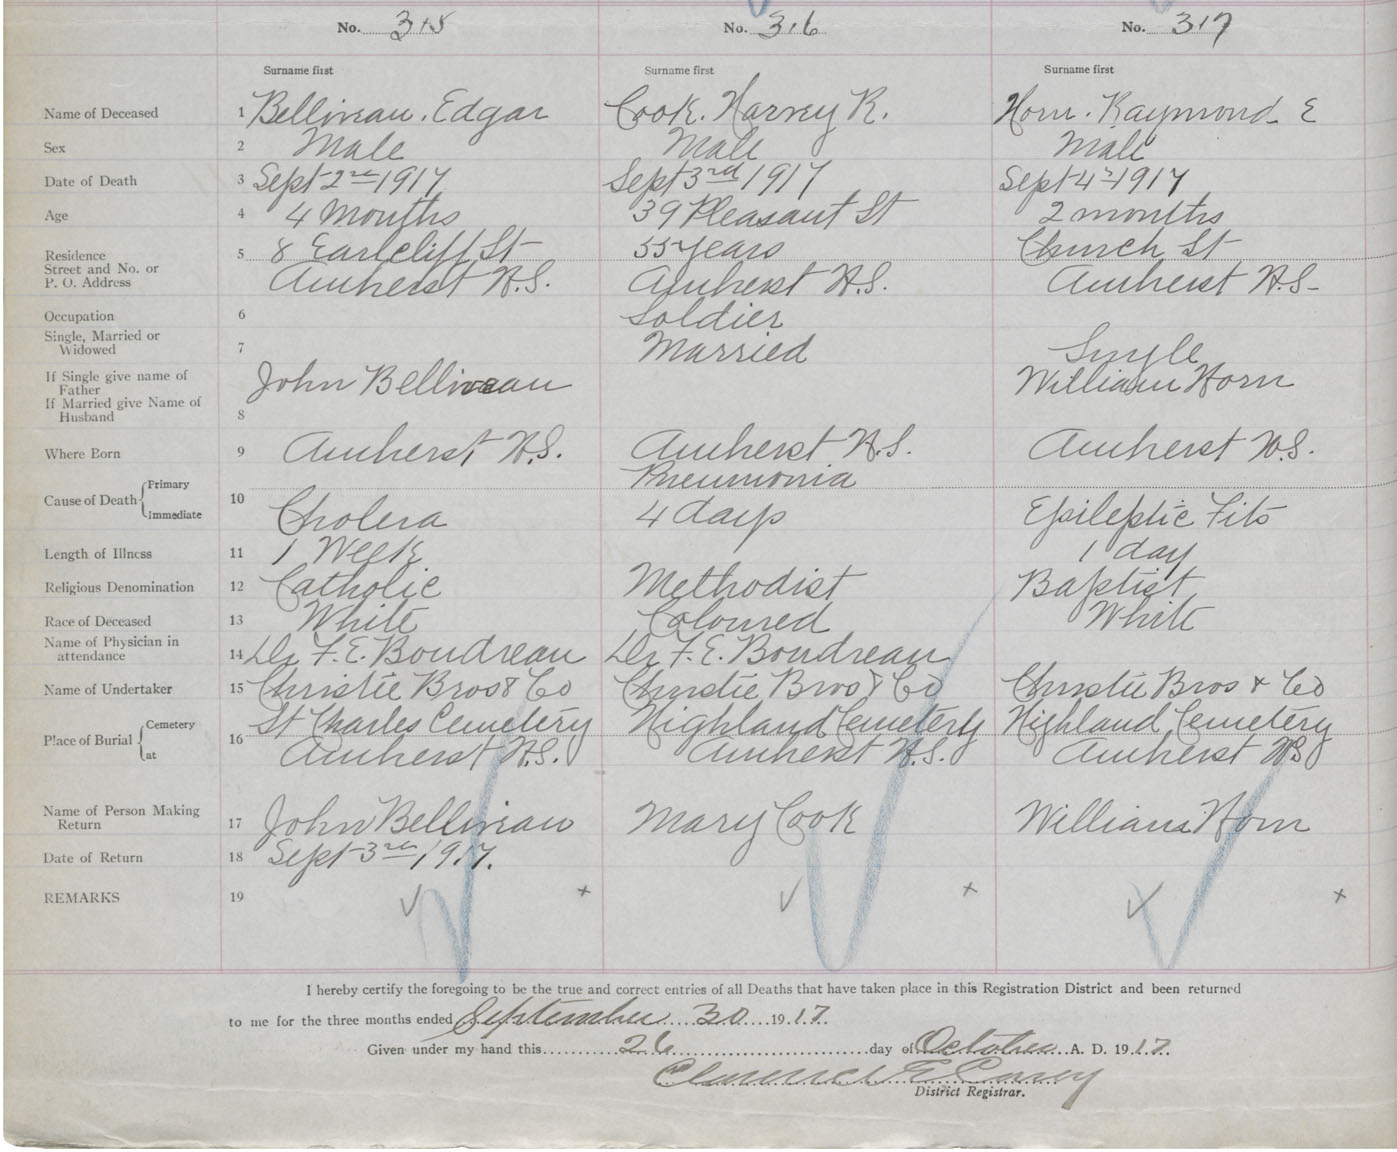 No. 315 No. 316 No. 317
Surname first Surname first Surname first
Name of Deceased 1 Belliveau. Edgar Cook. Harvey R. Horn. Raymond E
Sex 2 Male Male Male
Date of Death 3 Sept 2nd 1917 Sept 3rd 1917 Sept 4th 1917
Age 4 4 Months 39 Pleasant St 2 months
Residence 5 8 Earlcliff St 55 years Church St
Street and No. or
P. O. Address Amherst N.S. Amherst N.S. Amherst N.S.
Occupation 6 Soldier
Single, Married or
Widowed 7 Married Single
If Single give name of
Father John Belliveau William Horn
If Married give Name of
Husband 8
Where Born 9 Amherst N.S. Amherst N.S. Amherst N.S.
Cause of Death Primary 10 Pneumonia
Immediate Cholera 4 days Epileptic Fits
Length of Illness 11 1 Week 1 day
Religious Denomination 12 Catholic Methodist Baptist
Race of Deceased 13 White Coloured White
Name of Physician in
attendance 14 Dr F. E. Boudreau Dr F. E. Boudreau
Name of Undertaker 15 Christie Bros & Co Christie Bros & Co Christie Bros & Co
Place of Burial Cemetery 16 St Charles Cemetery Highland Cemetery Highland Cemetery
at Amherst N.S. Amherst N.S. Amherst N.S
Name of Person Making
Return 17 John Belliveau Mary Cook William Horn
Date of Return 18 Sept 3rd 1917.
REMARKS 19
I hereby certify the foregoing to be the true and correct entries of all Deaths that have taken place in this Registration District and been returned
to me for the three months ended September 30 1917.
Given under my hand this 26 day of October A. D. 1917.
Clarence E Casey
District Registrar.